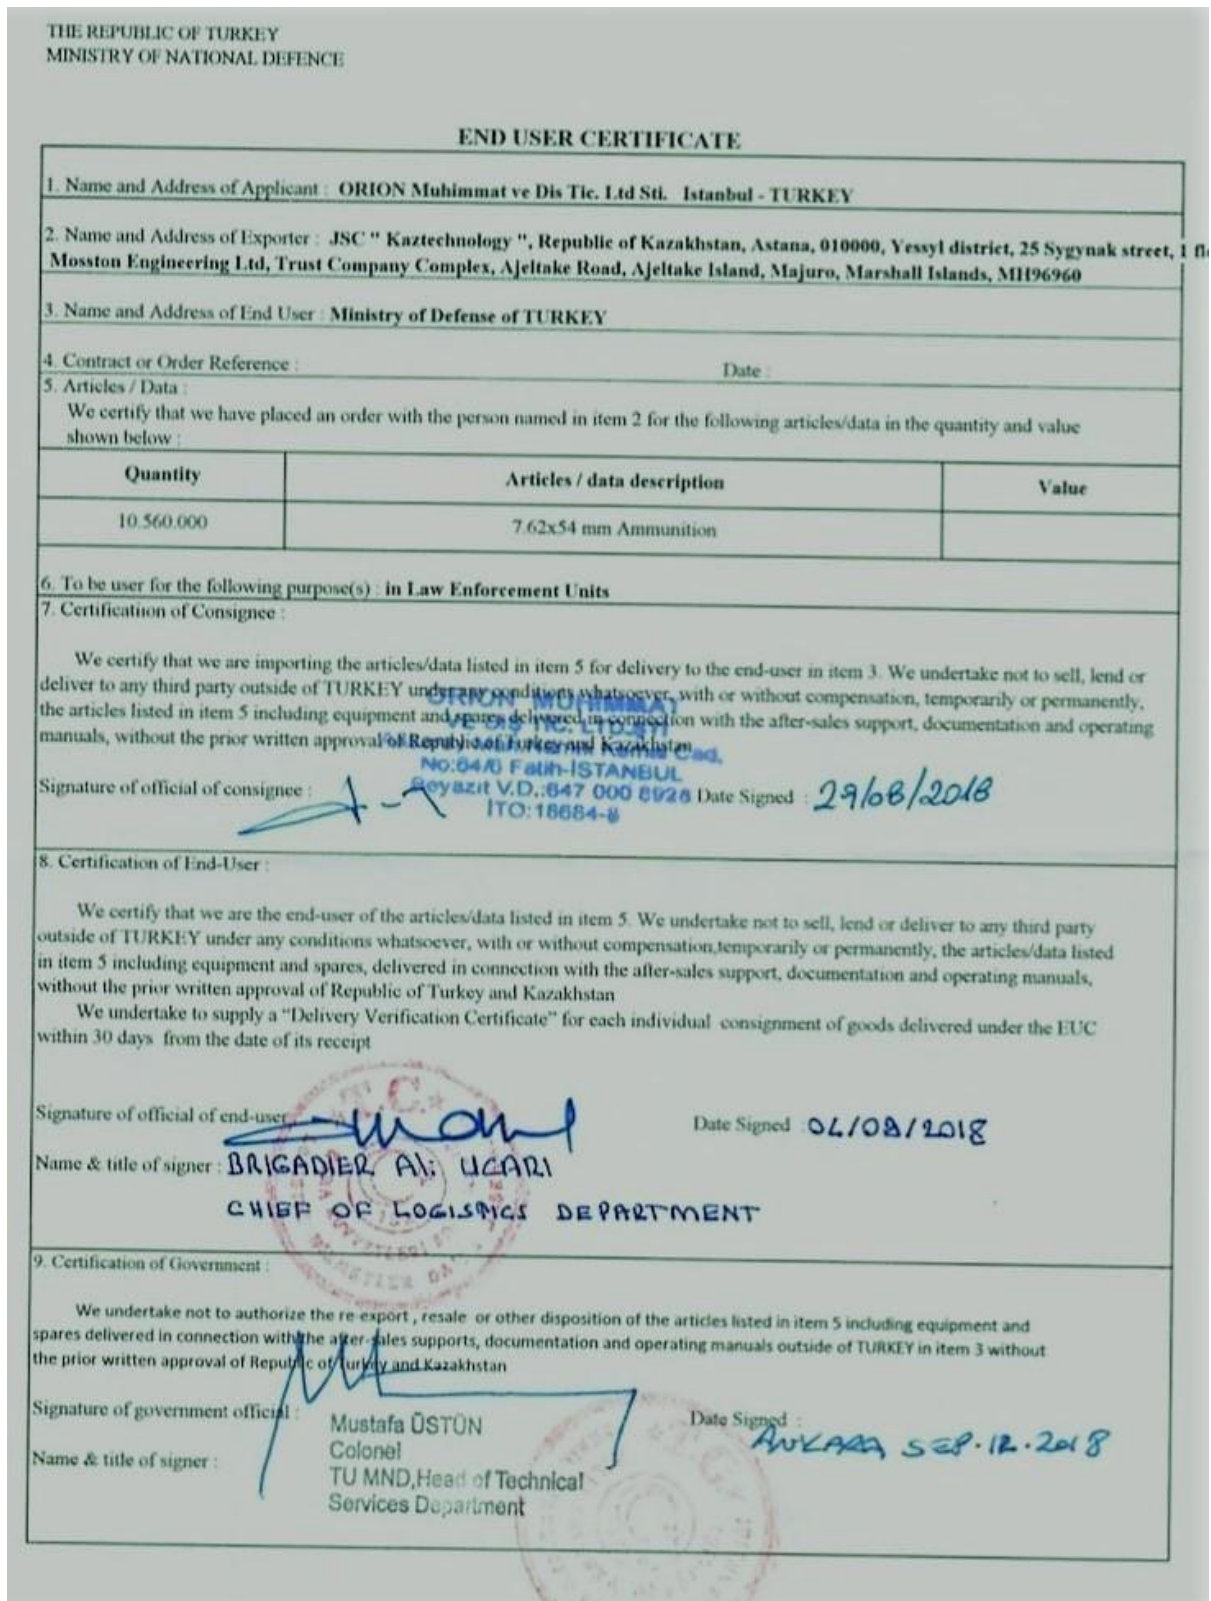 THE REPUBLIC OF TURKEY
MINISTRY OF NATIONAL DEFENCE
END USER CERTIFICATE
1. Name and Address of Applicant : ORION Muhimmat ve Dis Tic. Ltd Sti. Istanbul - TURKEY
2. Name and Address of Exporter : JSC " Kaztechnology ", Republic of Kazakhstan, Astana, 010000, Yessyl district, 25 Sygynak street, 1 fl
Mosston Engineering Ltd, Trust Company Complex, Ajeltake Road, Ajeltake Island, Majuro, Marshall Islands, MH96960
3. Name and Address of End User : Ministry of Defense of TURKEY
4. Contract or Order Reference : Date :
5. Articles / Data :
We certify that we have placed an order with the person named in item 2 for the following articles/data in the quantity and value
shown below :
Quantity Articles / data description Value
10.560.000 7.62x54 mm Ammunition
6. To be user for the following purpose(s) : in Law Enforcement Units
7. Certificatiion of Consignee :
We certify that we are importing the articles/data listed in item 5 for delivery to the end-user in item 3. We undertake not to sell, lend or
deliver to any third party outside of TURKEY under any conditions whatsoever, with or without compensation, temporarily or permanently,
the articles listed in item 5 including equipment and spares delivered in connection with the after-sales support, documentation and operating
manuals, without the prior written approval of Republic of Turkey and Kazakhstan
ORION MUHIMMAT
VE DIŞ TIC. LTD.ŞTİ
Cad.
No:64/6 Fatih-İSTANBUL
Beyazıt V.D.:647 000 8928
İTO:18684-8
Signature of official of consignee : Date Signed : 29/08/2018
8. Certification of End-User :
We certify that we are the end-user of the articles/data listed in item 5. We undertake not to sell, lend or deliver to any third party
outside of TURKEY under any conditions whatsoever, with or without compensation,temporarily or permanently, the articles/data listed
in item 5 including equipment and spares, delivered in connection with the after-sales support, documentation and operating manuals,
without the prior written approval of Republic of Turkey and Kazakhstan
We undertake to supply a “Delivery Verification Certificate” for each individual consignment of goods delivered under the EUC
within 30 days from the date of its receipt
T.C.
Signature of official of end-user Date Signed : 04/09/2018
Name & title of signer : BRIGADIER Ali UCARI
CHIEF OF LOGISTICS DEPARTMENT
9. Certification of Government :
We undertake not to authorize the re-export , resale or other disposition of the articles listed in item 5 including equipment and
spares delivered in connection with the after-sales supports, documentation and operating manuals outside of TURKEY in item 3 without
the prior written approval of Republic of Turkey and Kazakhstan
Signature of government official : Date Signed :
ANKARA SEP.12.2018
Name & title of signer :
Mustafa ÜSTÜN
Colonel
TU MND,Head of Technical
Services Department